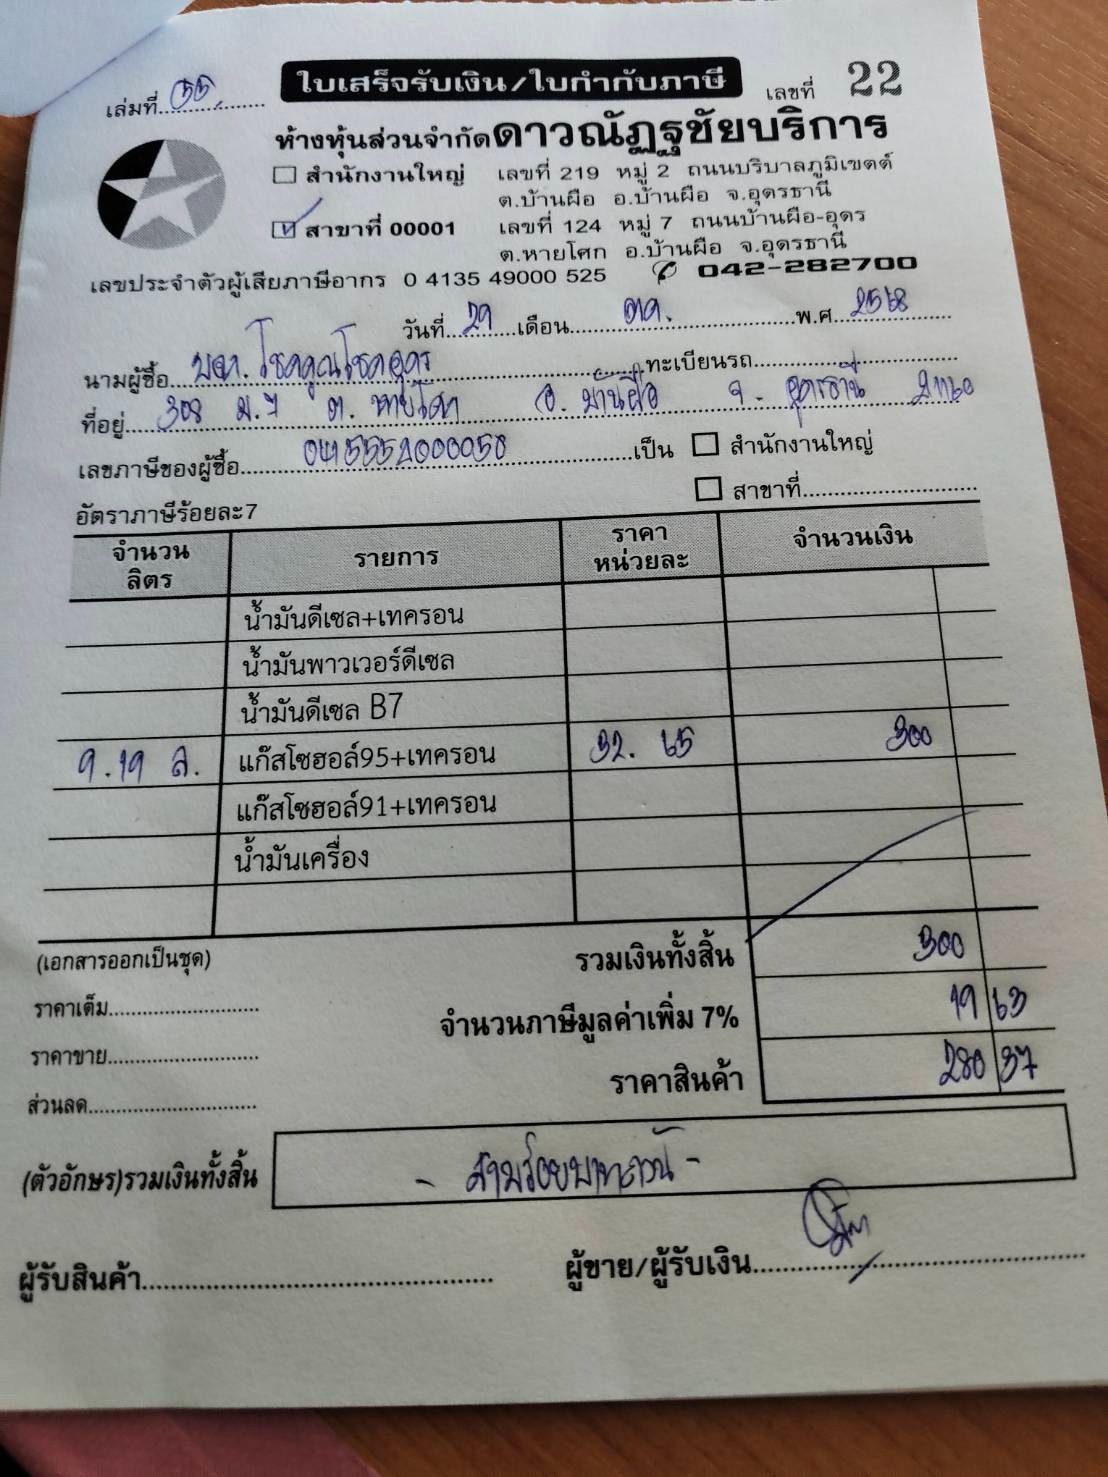 ใบเสร็จรับเงิน/ใบกำกับภาษี
เล่มที่ 55 เลขที่ 22
ห้างหุ้นส่วนจำกัดดาวณัฏฐชัยบริการ
สำนักงานใหญ่ เลขที่ 219 หมู่ 2 ถนนบริบาลภูมิเขตต์
ต.บ้านผือ อ.บ้านผือ จ.อุดรธานี
สาขาที่ 00001 เลขที่ 124 หมู่ 7 ถนนบ้านผือ-อุดร
ต.หายโศก อ.บ้านผือ จ.อุดรธานี
เลขประจำตัวผู้เสียภาษีอากร 0 4135 49000 525 ✆ 042-282700
วันที่ 29 เดือน ตค. พ.ศ 2568
นามผู้ซื้อ บจก. โชคคูณโชคอุดร ทะเบียนรถ
ที่อยู่ 308 ม.7 ต. หายโศก อ. บ้านผือ จ. อุดรธานี 41160
เลขภาษีของผู้ซื้อ 0415552000050 เป็น สำนักงานใหญ่
สาขาที่
อัตราภาษีร้อยละ7
จำนวนลิตร รายการ ราคาหน่วยละ จำนวนเงิน
น้ำมันดีเซล+เทครอน
น้ำมันพาวเวอร์ดีเซล
น้ำมันดีเซล B7
9.19 ล. แก๊สโซฮอล์95+เทครอน 32.65 300
แก๊สโซฮอล์91+เทครอน
น้ำมันเครื่อง
(เอกสารออกเป็นชุด) รวมเงินทั้งสิ้น 300
ราคาเต็ม จำนวนภาษีมูลค่าเพิ่ม 7% 19 63
ราคาขาย ราคาสินค้า 280 37
ส่วนลด
(ตัวอักษร)รวมเงินทั้งสิ้น - สามร้อยบาทถ้วน -
ผู้รับสินค้า ผู้ขาย/ผู้รับเงิน